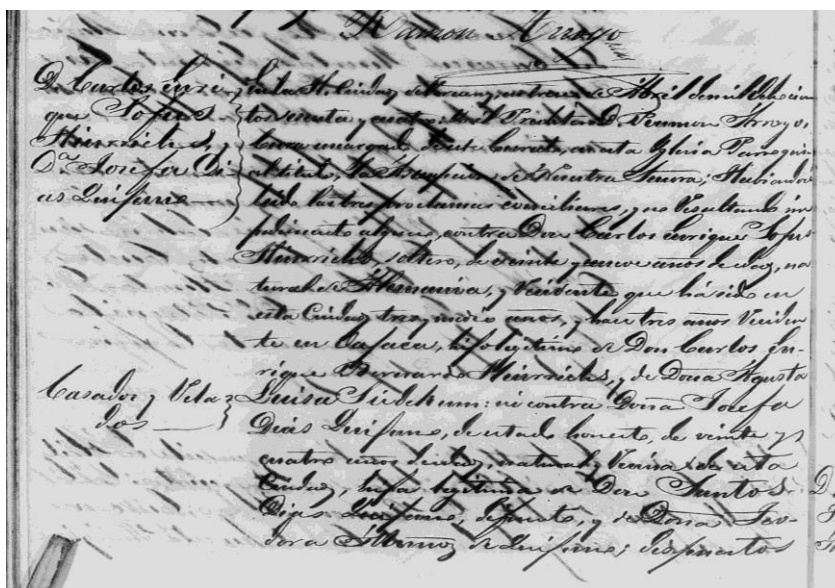 Ramon Arroyo
D. Carlos Enri-
que Sofus
Hinrichs, y
Da. Josefa Di-
as Quijano
En la H. Ciudad de y cuatro de Abril de mil ochocien-
tos y cuatro: Yo el Presbitero D. Ramon Arroyo,
Cura encargado de este Curato, en esta Yglecia Parroquial
su titulo, la Asumpcion de Nuestra Señora; Habiendo
leido las tres proclamas conciliares, y no resultando im-
pedimento alguno, contra Don Carlos Enrique Sofus
Hinrichs soltero, de veinte y nueve años de edad, na-
tural de Alemania, y Residente que há sido en
esta Ciudad tres y medio años, y hace tres años Reciden-
te en Oajaca, hijo legitimo de Don Carlos En-
rique Bernardo Hinrichs, y de Doña Agusta
Luisa : ni contra Doña Josefa
Dias Quijano, de estado honesto, de veinte y
cuatro años de edad, natural y Vecina de esta
Ciudad, hija legitima de Don Santos
Dias Quijano, difunto, y de Doña Teo-
dora Muñoz de Quijano; dispuestos
Casados y Vela-
dos